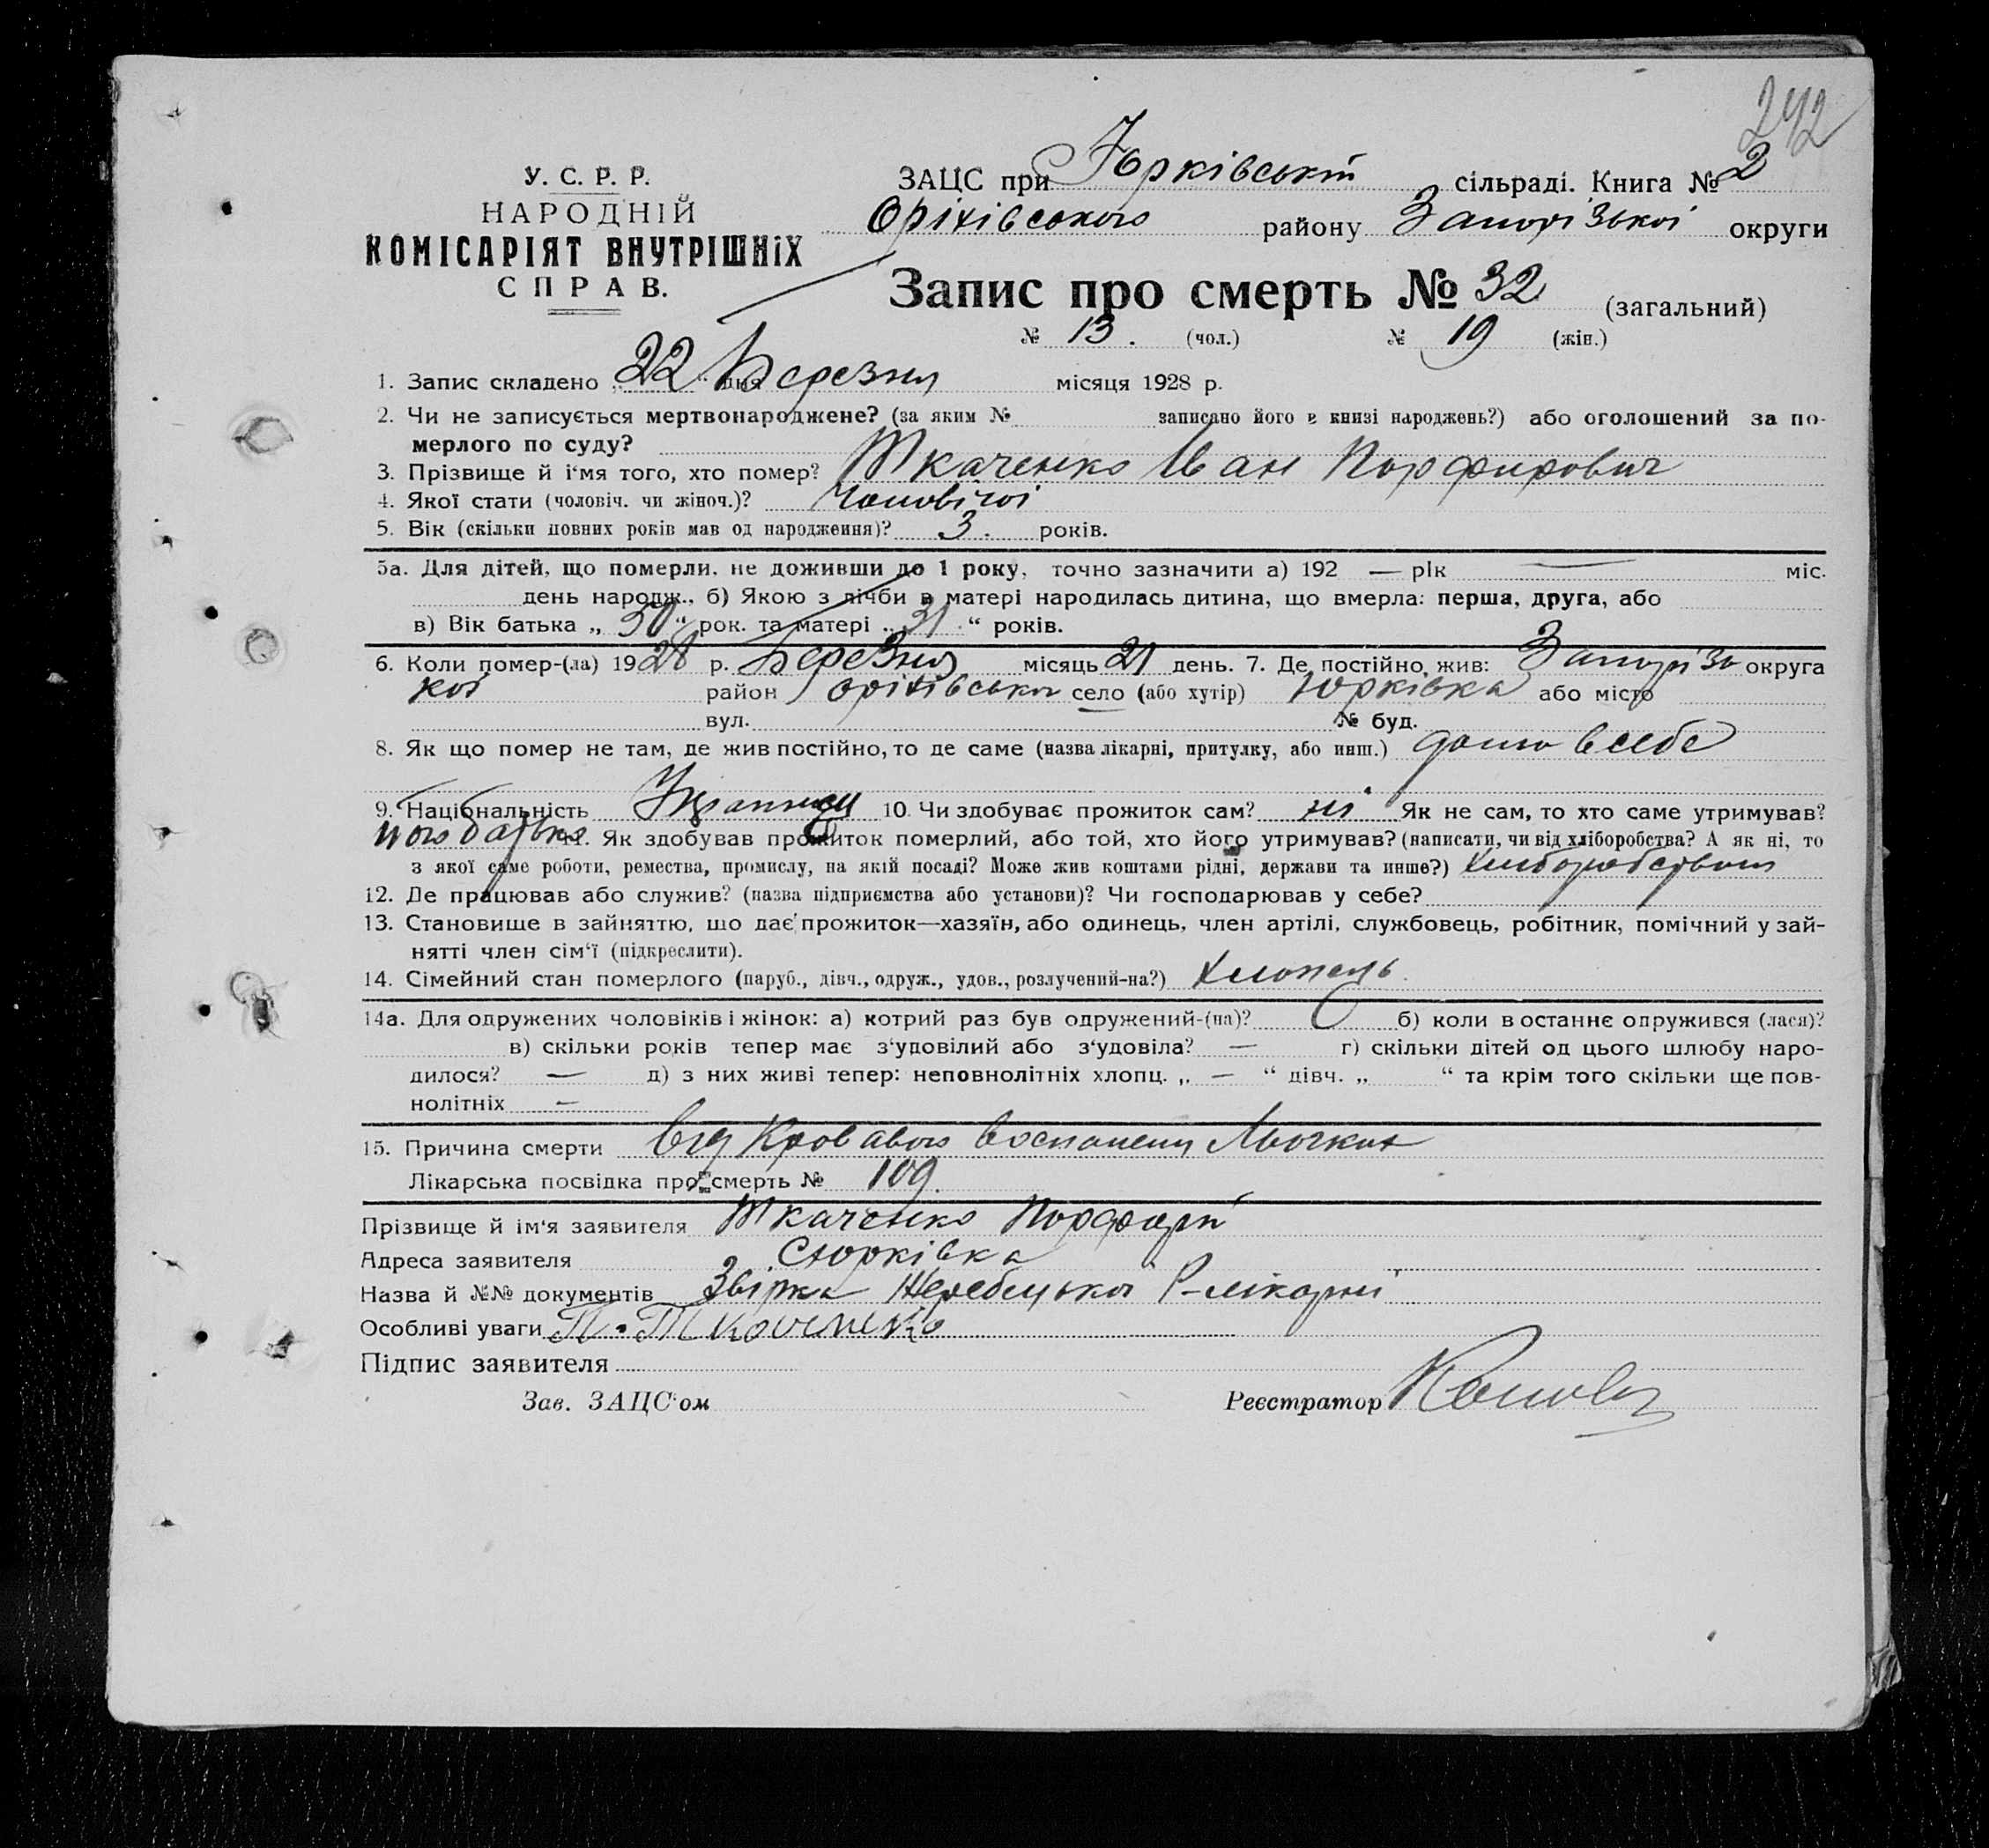 242
У. С. Р. Р.
НАРОДНІЙ
КОМІСАРІЯТ ВНУТРІШНІХ
СПРАВ.
ЗАЦС при Юрківській сільраді. Книга № 2
Оріхівського району Запорізької округи
Запис про смерть № 32 (загальний)
№ 13. (чол.) № 19 (жін.)
1. Запис складено „22“ дня Березня місяця 1928 р.
2. Чи не записується мертвонароджене? (за яким № записано його в книзі народжень?) або оголошений за по-
мерлого по суду?
3. Прізвище й і‘мя того, хто помер? Ткаченко Иван Порфирович
4. Якої стати (чоловіч. чи жіноч.)? Чоловічої
5. Вік (скільки повних років мав од народження)? 3. років.
5а. Для дітей, що померли, не доживши до 1 року, точно зазначити а) 192 — рік — міс.
день народж., б) Якою з лічби в матері народилась дитина, що вмерла: перша, друга, або
в) Вік батька „ 30 “ рок. та матері „ 31 “ років.
6. Коли помер-(ла) 1928 р. Березня місяць 21 день. 7. Де постійно жив: Запорізь округа
кої район Оріхівського село (або хутір) Юрківка або місто
вул. № буд.
8. Як що помер не там, де жив постійно, то де саме (назва лікарні, притулку, або инш.) дома в себе
9. Національність 10. Чи здобуває прожиток сам? ні Як не сам, то хто саме утримував?
його батько 11. Як здобував прожиток померлий, або той, хто його утримував? (написати, чи від хліборобства? А як ні, то
з якої саме роботи, ремества, промислу, на якій посаді? Може жив коштами рідні, держави та инше?) хліборобством
12. Де працював або служив? (назва підприємства або установи)? Чи господарював у себе?
13. Становище в зайняттю, що дає прожиток—хазяїн, або одинець, член артілі, службовець, робітник, помічний у зай-
нятті член сім‘ї (підкреслити).
14. Сімейний стан померлого (паруб., дівч., одруж., удов., розлучений-на?) хлопець
14а. Для одружених чоловіків і жінок: а) котрий раз був одружений-(на)? б) коли в останнє одружився (лася)?
в) скільки років тепер має з‘удовілий або з‘удовіла? — г) скільки дітей од цього шлюбу наро-
дилося? — д) з них живі тепер: неповнолітніх хлопц. „ — “ дівч. „ “ та крім того скільки ще пов-
нолітніх —
15. Причина смерти Від Кровавого
Лікарська посвідка про смерть № 109.
Прізвище й ім‘я заявителя Ткаченко Порфирій
Адреса заявителя С Юрківка
Назва й №№ документів Жеребецької Р-лікарні
Особливі уваги П. Ткаченко
Підпис заявителя
Зав. ЗАЦС‘ом Реєстратор